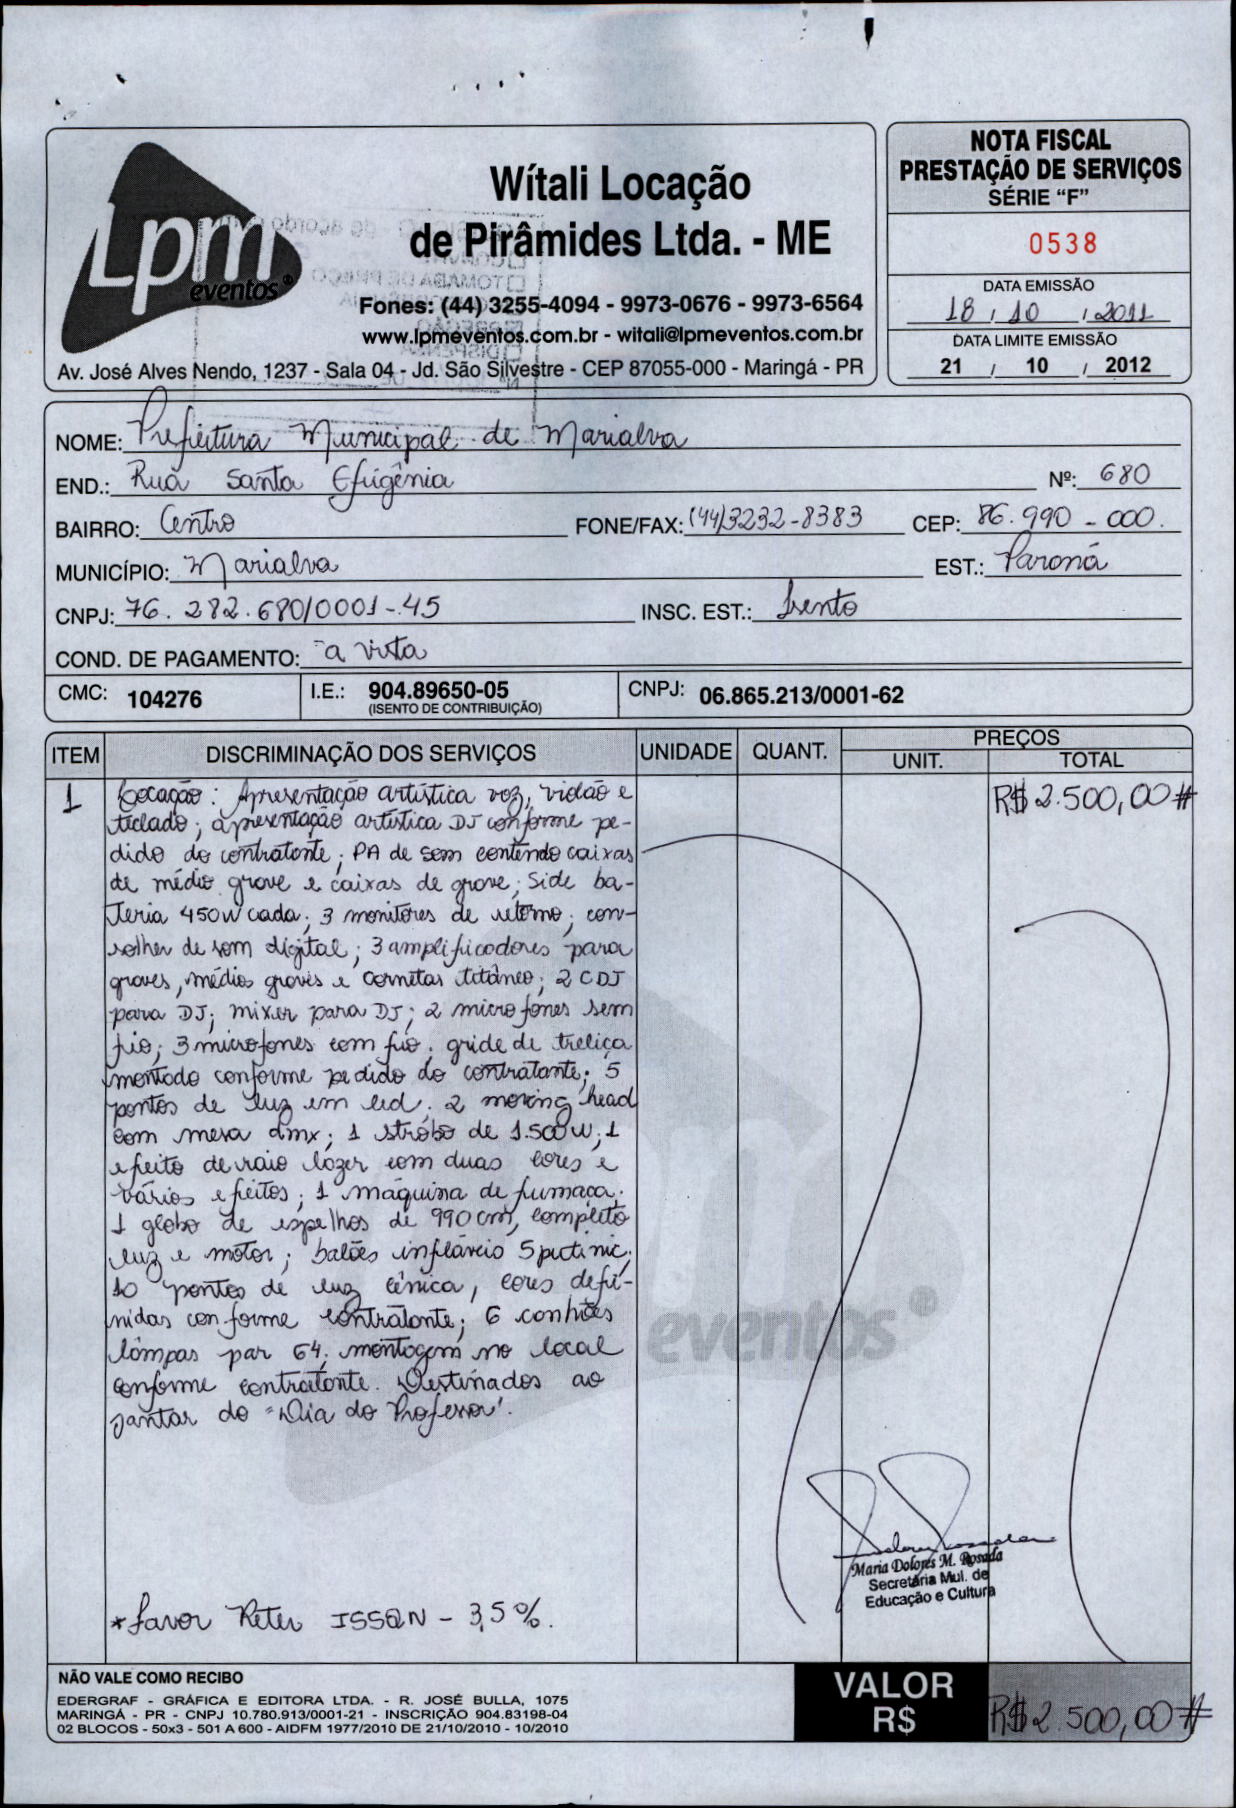 Lpm
eventos®
Wítali Locação
de Pirâmides Ltda. - ME
Fones: (44) 3255-4094 - 9973-0676 - 9973-6564
www.lpmeventos.com.br - witali@lpmeventos.com.br
Av. José Alves Nendo, 1237 - Sala 04 - Jd. São Silvestre - CEP 87055-000 - Maringá - PR
NOTA FISCAL
PRESTAÇÃO DE SERVIÇOS
SÉRIE “F”
0538
DATA EMISSÃO
18 / 10 / 2011
DATA LIMITE EMISSÃO
21 / 10 / 2012
NOME: Prefeitura Municipal de Marialva
END.: Rua Santa Efigênia Nº: 680
BAIRRO: Centro FONE/FAX: (44)3232-8383 CEP: 86.990-000.
MUNICÍPIO: Marialva EST.: Paraná
CNPJ: 76.282.680/0001-45 INSC. EST.: Isento
COND. DE PAGAMENTO: a vista
CMC: 104276 I.E.: 904.89650-05 CNPJ: 06.865.213/0001-62
(ISENTO DE CONTRIBUIÇÃO)
ITEM DISCRIMINAÇÃO DOS SERVIÇOS UNIDADE QUANT. PREÇOS
UNIT. TOTAL
1 Locação: Apresentação artística voz, violão e R$ 2.500,00#
teclado; apresentação artística DJ conforme pe-
dido do contratante; PA de som contendo caixas
de médio grave e caixas de grave; Side ba-
teria 450W cada; 3 monitores de retorno; con-
solher de som digital; 3 amplificadores para
graves, médios graves e cornetas titânio; 2 CDJ
para DJ; mixer para DJ; 2 microfones sem
fio; 3 microfones com fio; gride de treliça
montado conforme pedido do contratante; 5
pontos de luz em led; 2 moving head
com mesa dmx; 1 strobo de 1.500W; 1
efeito de raio lazer com duas cores e
vários efeitos; 1 máquina de fumaça;
1 globo de espelhos de 990cm, completo
luz e motor; balões infláveis Sputinic;
10 pontos de luz cênica, cores defi-
nidas conforme contratante; 6 canhões
lâmpas par 64; montagem no local
conforme contratante. Destinados ao
jantar do "Dia do Professor".
eventos®
Maria Dolores M. Rosada
Secretária Mul. de
Educação e Cultura
*Favor Reter ISSQN - 3,5%.
NÃO VALE COMO RECIBO
EDERGRAF - GRÁFICA E EDITORA LTDA. - R. JOSÉ BULLA, 1075
MARINGÁ - PR - CNPJ 10.780.913/0001-21 - INSCRIÇÃO 904.83198-04
02 BLOCOS - 50x3 - 501 A 600 - AIDFM 1977/2010 DE 21/10/2010 - 10/2010
VALOR
R$
R$ 2.500,00#